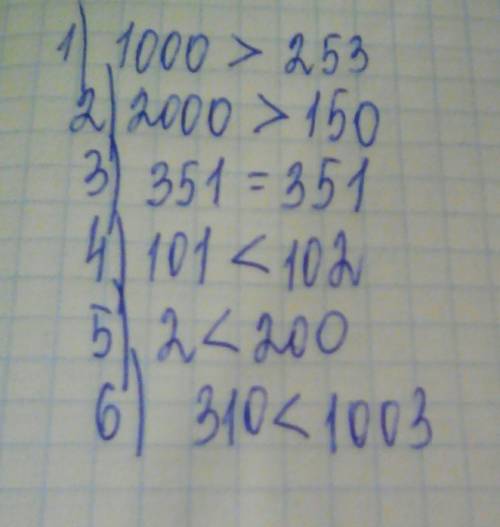 1) 1000 > 253
2) 2000 > 150
3) 351 = 351
4) 101 < 102
5) 2 < 200
6) 310 < 1003